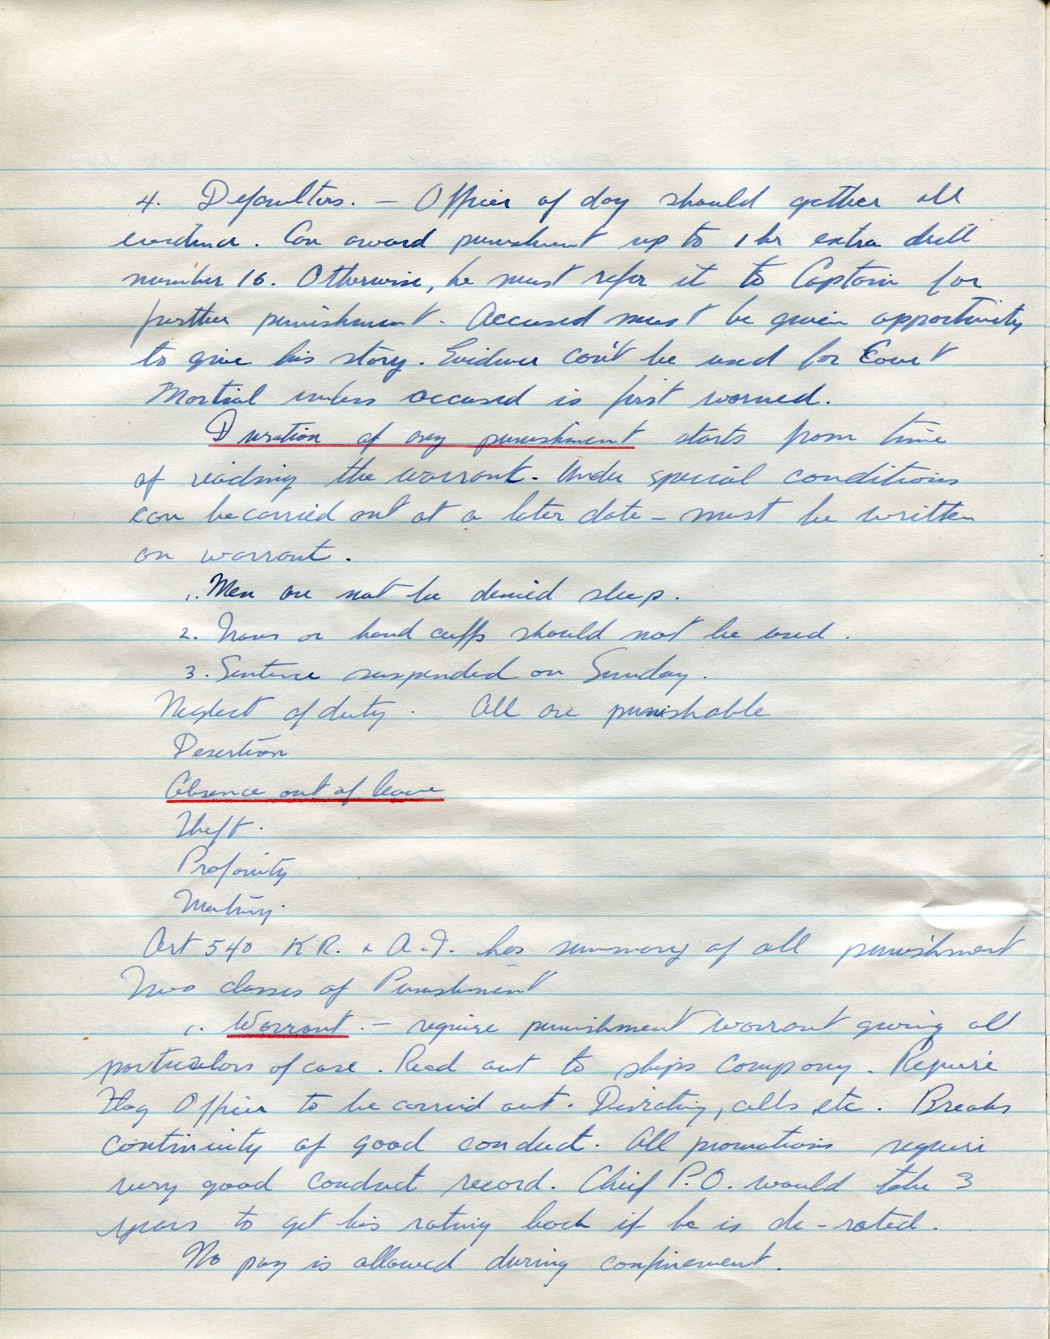 4. Defaulters. - Officer of day should gather all
evidence. Can award punishment up to 1 hr extra drill
number 16. Otherwise, he must refer it to Captain for
further punishment. Accused must be given opportunity
to give his story. Evidence can't be used for Court
Martial unless accused is first warned.
Duration of any punishment starts from time
of reading the warrant. Under special conditions
can be carried out at a later date - must be written
on warrant.
1. Men are not be denied sleep.
2. Irons or hand cuffs should not be used.
3. Sentence suspended on Sunday.
Neglect of duty. All are punishable
Desertion
Absence out of leave
Theft.
Profanity
Mutiny.
Art 540 K R. & A.I. has summary of all punishment
Two classes of Punishment
1. Warrant. - require punishment warrant giving all
particulars of case. Read out to ships company. Require
Flag Officer to be carried out. Disrating, cells etc. Breaks
continuity of good conduct. All promotions require
very good conduct record. Chief P.O. would take 3
years to get his rating back if he is de-rated.
No pay is allowed during confinement.